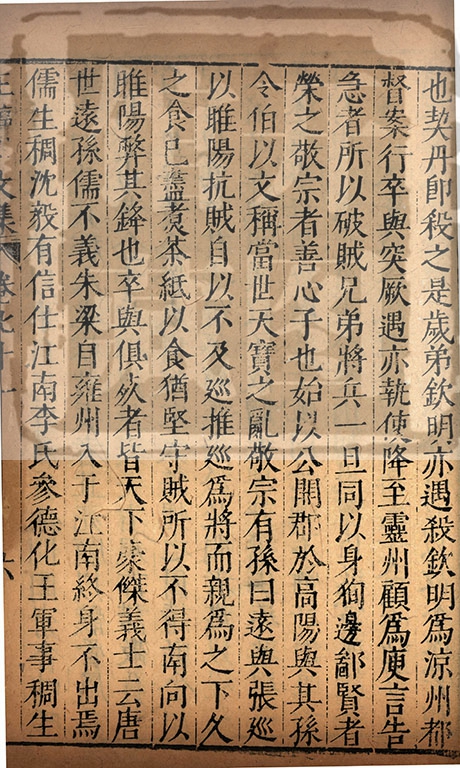 也契丹即殺之是歲弟欽明亦遇殺欽明爲涼州都
督案行卒與突厥遇亦執使降至靈州顧爲庾言告
急者所以破賊兄弟將兵一旦同以身徇邊鄙賢者
榮之敬宗者善心子也始以公開郡於高陽與其孫
令伯以文稱當世天寶之亂敬宗有孫曰遠與張巡
以睢陽抗賊自以不及巡推巡爲將而親爲之下久
之食巳盡煑茶紙以食猶堅守賊所以不得南向以
睢陽弊其鋒也卒與俱㱙者皆天下豪傑義士云唐
世遠孫儒不義朱梁自雍州入于江南終身不出焉
儒生稠沈毅有信仕江南李氏參德化王軍事稠生
王 文集 卷九十一 六